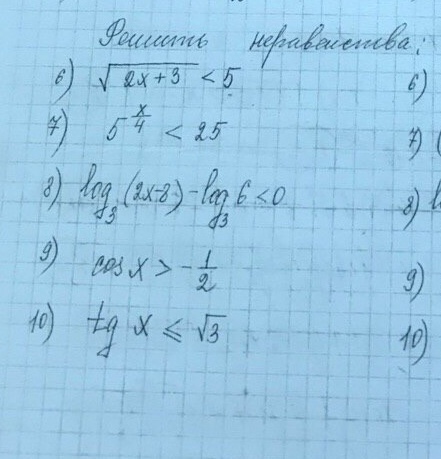 Решить неравенства:
6) √(2x+3) < 5 6)
7) 5^(x/4) < 25 7) (
8) log₃(2x-8) - log₃6 < 0 8) l
9) cos x > -1/2 9)
10) tg x ≤ √3 10)